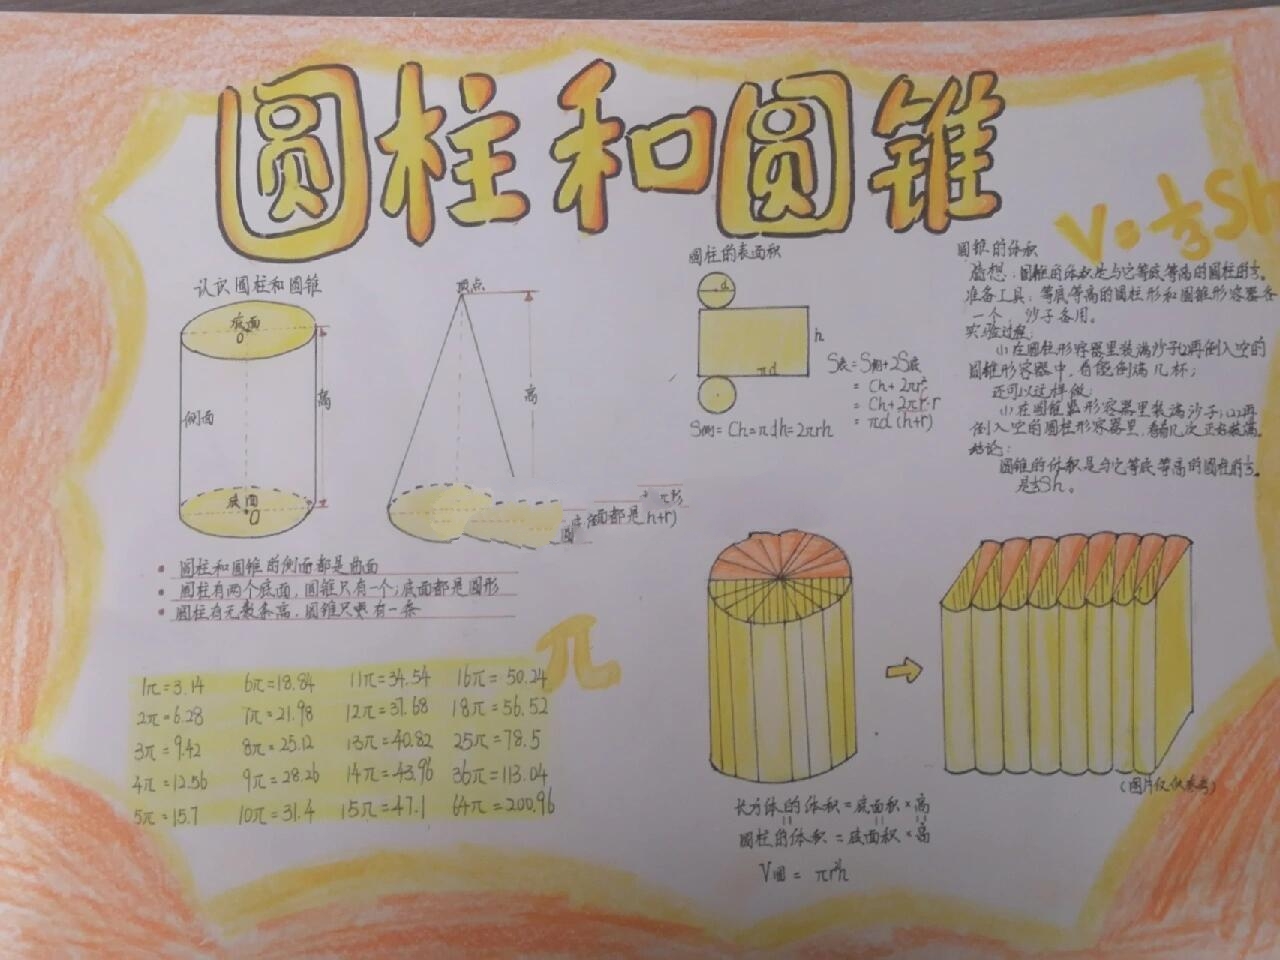 圆柱和圆锥
V=⅓Sh
认识圆柱和圆锥
底面
O
侧面
高
底面
O
顶点
高
面都是
h+r)
圆柱和圆锥的侧面都是曲面
圆柱有两个底面,圆锥只有一个;底面都是圆形
圆柱有无数条高,圆锥只有一条
π
1π=3.14 6π=18.84 11π=34.54 16π=50.24
2π=6.28 7π=21.98 12π=37.68 18π=56.52
3π=9.42 8π=25.12 13π=40.82 25π=78.5
4π=12.56 9π=28.26 14π=43.96 36π=113.04
5π=15.7 10π=31.4 15π=47.1 64π=200.96
圆柱的表面积
d
h
πd
S表=S侧+2S底
=Ch+2πr²
=Ch+2πr·r
=πd(h+r)
S侧=Ch=πdh=2πrh
圆锥的体积
猜想:圆锥的体积是与它等底等高的圆柱的⅓。
准备工具:等底等高的圆柱形和圆锥形容器各
一个,沙子备用。
实验过程:
(1)在圆柱形容器里装满沙子(2)再倒入空的
圆锥形容器中,看能倒满几杯;
还可以这样做:
(1)在圆锥形容器里装满沙子;(2)再
倒入空的圆柱形容器里,看几次正好装满。
结论:
圆锥的体积是与它等底等高的圆柱的⅓。
是⅓Sh。
(图片仅供参考)
长方体的体积=底面积×高
圆柱的体积=底面积×高
V圆=πr²h